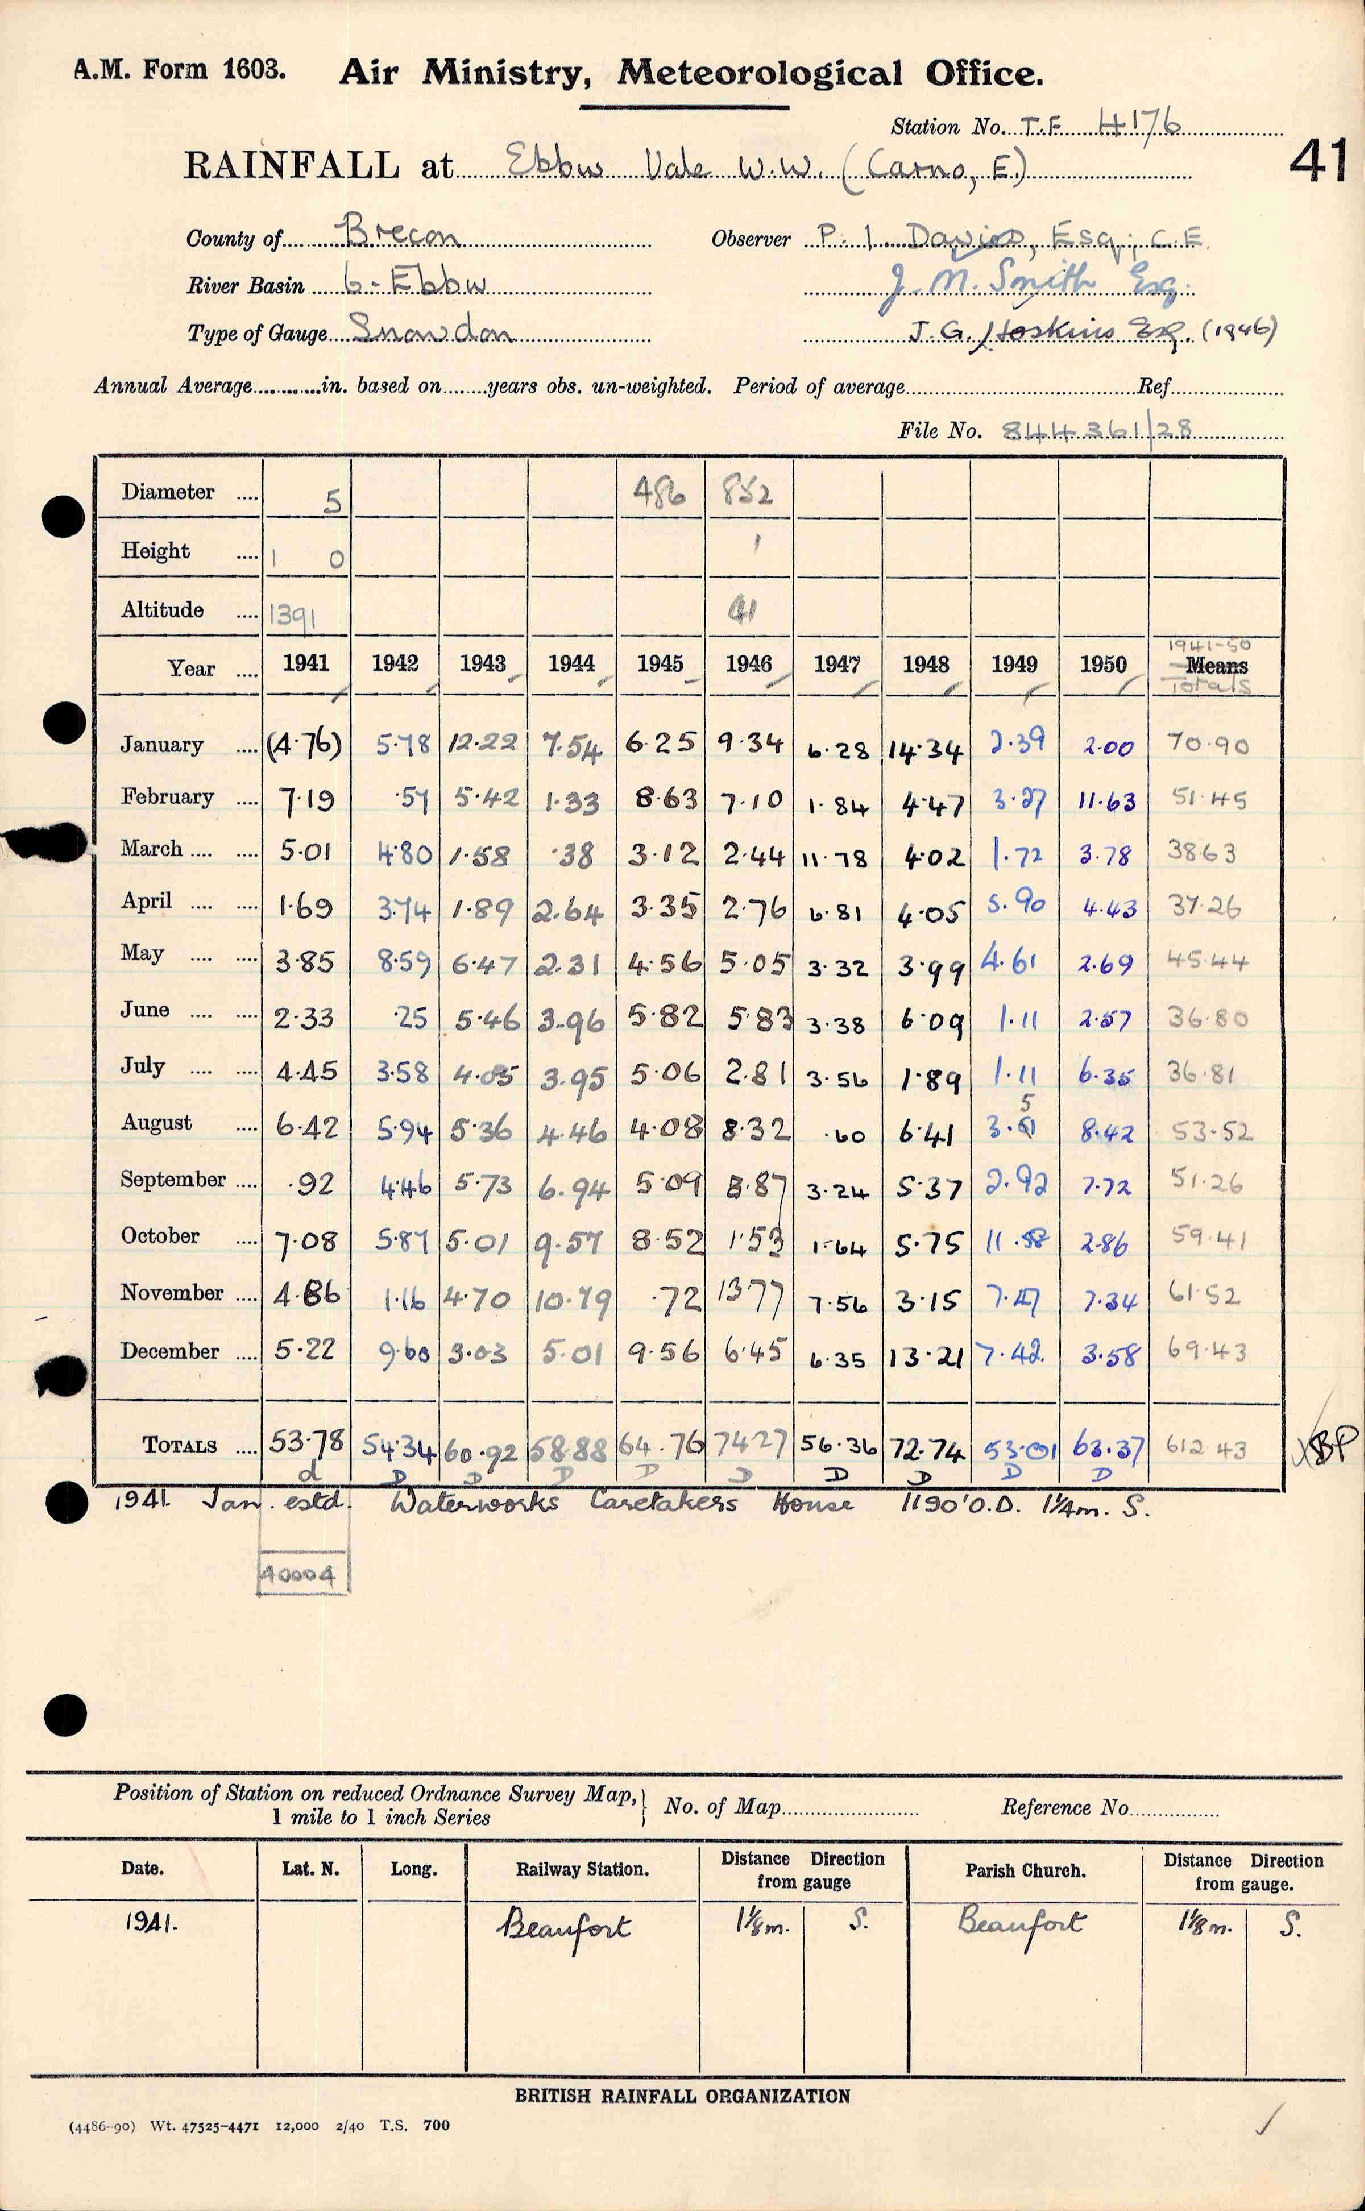 A.M. Form 1603. Air Ministry, Meteorological Office.
Station No. T.F 4176
RAINFALL at Ebbw Vale W.W. (Carno, E.) 41
County of Brecon Observer P. I. Davies, Esq., C.E.
River Basin 6. Ebbw J. M. Smith Esq.
Type of Gauge Snowdon J.G. Hoskins Esq. (1946)
Annual Average in. based on years obs. un-weighted. Period of average Ref
File No. 844361/28
Diameter 5 486 852
Height 1 0 1
Altitude 1391 41
1941-50
Year 1941 1942 1943 1944 1945 1946 1947 1948 1949 1950 Means
Totals
January (4.76) 5.78 12.22 7.54 6.25 9.34 6.28 14.34 2.39 2.00 70.90
February 7.19 .57 5.42 1.33 8.63 7.10 1.84 4.47 3.27 11.63 51.45
March 5.01 4.80 1.58 .38 3.12 2.44 11.78 4.02 1.72 3.78 38.63
April 1.69 3.74 1.89 2.64 3.35 2.76 6.81 4.05 5.90 4.43 37.26
May 3.85 8.59 6.47 2.31 4.56 5.05 3.32 3.99 4.61 2.69 45.44
June 2.33 .25 5.46 3.96 5.82 5.83 3.38 6.09 1.11 2.57 36.80
July 4.45 3.58 4.05 3.95 5.06 2.81 3.56 1.89 1.11 6.35 36.81
August 6.42 5.94 5.36 4.46 4.08 8.32 .60 6.41 3.51 8.42 53.52
September .92 4.46 5.73 6.94 5.09 8.87 3.24 5.37 2.92 7.72 51.26
October 7.08 5.87 5.01 9.57 8.52 1.53 1.64 5.75 11.58 2.86 59.41
November 4.86 1.16 4.70 10.79 .72 13.77 7.56 3.15 7.47 7.34 61.52
December 5.22 9.60 3.03 5.01 9.56 6.45 6.35 13.21 7.42 3.58 69.43
TOTALS 53.78 54.34 60.92 58.88 64.76 74.27 56.36 72.74 53.01 63.37 612.43 BP
d D D D D D D D D D
1941 Jan. estd. Waterworks Caretakers House 1190' O.D. 1¼m. S.
40004
Position of Station on reduced Ordnance Survey Map, 1 mile to 1 inch Series No. of Map Reference No.
Date. Lat. N. Long. Railway Station. Distance from gauge Direction Parish Church. Distance from gauge. Direction
1941. Beaufort 1⅛m. S. Beaufort 1⅛m. S.
BRITISH RAINFALL ORGANIZATION
(4486-90) Wt. 47525-4471 12,000 2/40 T.S. 700